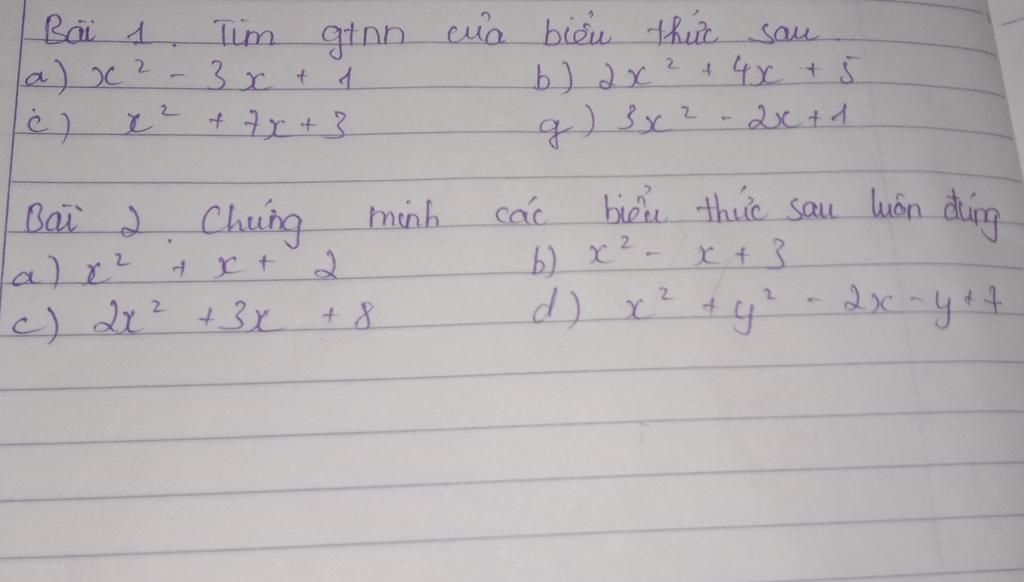 Bài 1. Tìm gtnn của biểu thức sau.
a) x² - 3x + 1 b) 2x² + 4x + 5
c) x² + 7x + 3 g) 3x² - 2x + 1
Bài 2. Chứng minh các biểu thức sau luôn đúng
a) x² + x + 2 b) x² - x + 3
c) 2x² + 3x + 8 d) x² + y² - 2x - y + 7